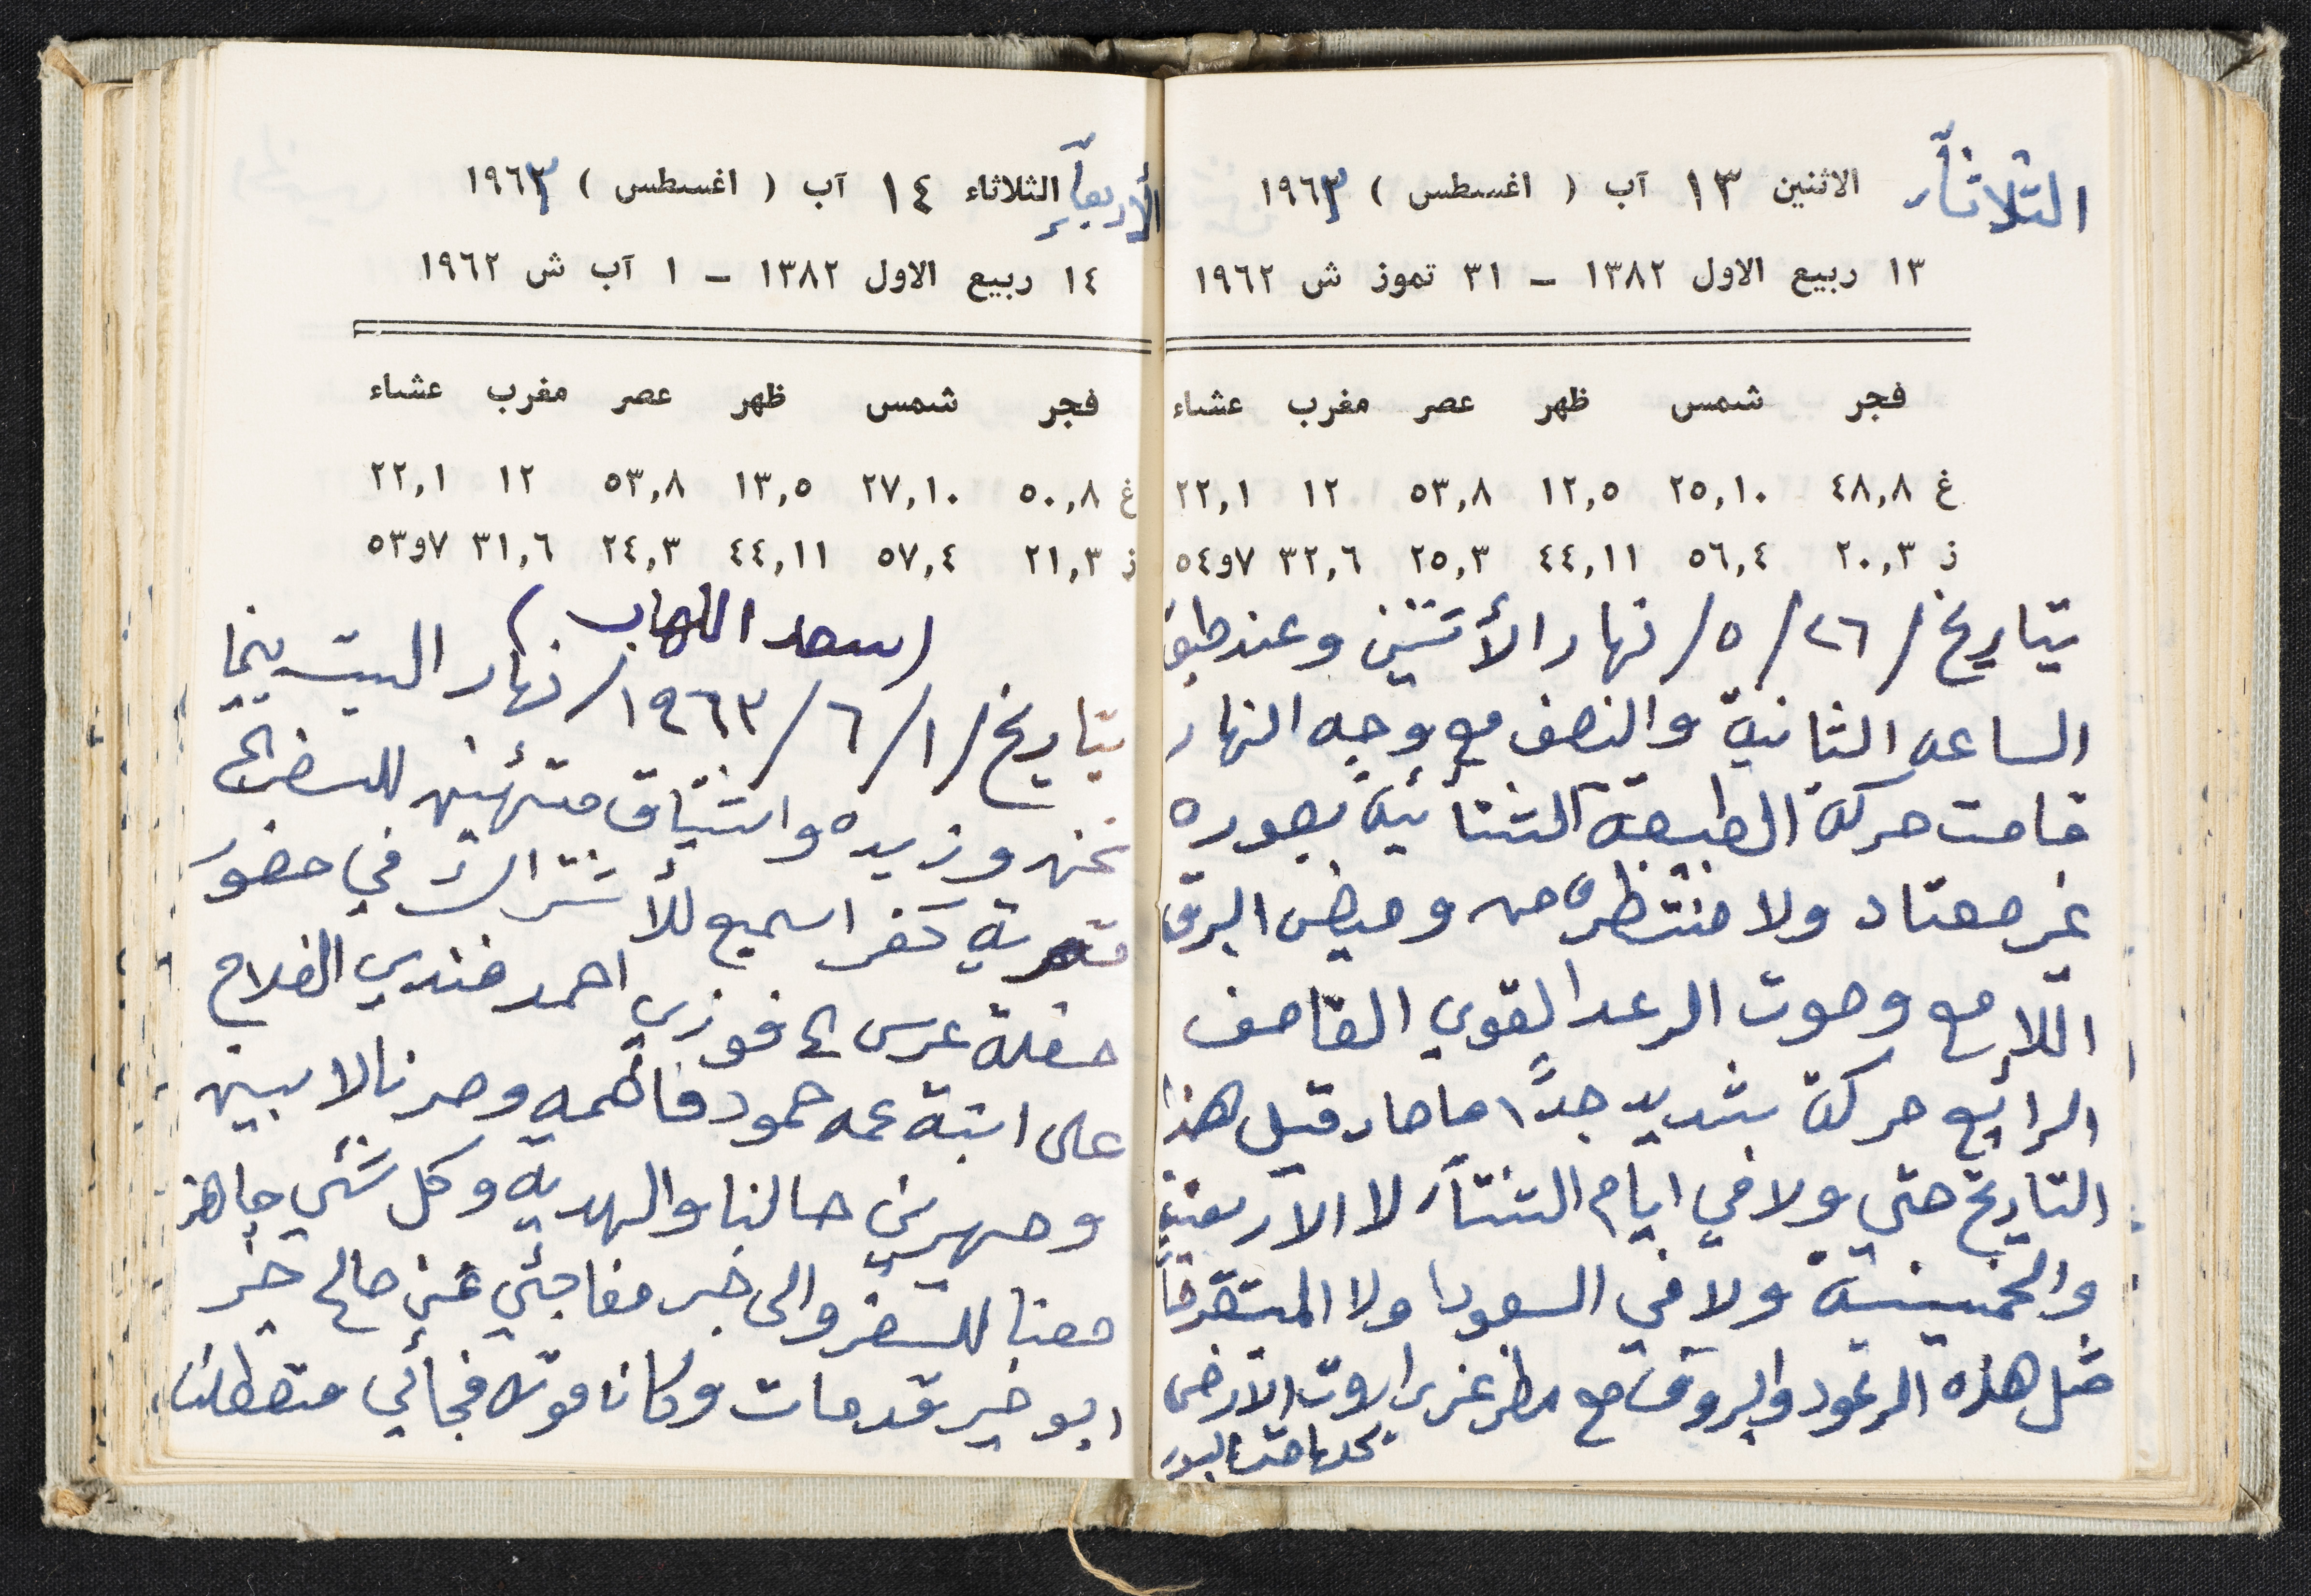 الثلاثآء
الاثنين ١٣ آب ( اغسطس ) ١٩٦٣
١٣ ربيع الاول ١٣٨٢ – ٣١ تموز ش ١٩٦٢
فجر شمس ظهر عصر مغرب عشاء
غ ٤٨,٨ ٢٥,١٠ ١٢,٥ ٥٣,٨ ١٢ ٢٢,١
ز ٢٠,٣ ٥٦,٤ ٤٤,١١ ٢٥,٣ ٣٢,٦ ٧و٥٤
بتاريخ /٢٦/ ٥/ نهار الأثنين وعند طبق
الساعه الثانية والنصف مع وجه النهار
قامت حركة الطبيعة الشتائية بصوره
غير معتاد ولا منتظره من وميض البرق
اللامع وصوت الرعد القوي القاصف
الرائع حركة شديد جداً ما صار قبل هذا
التاريخ حتى ولا في ايام الشتآء لا الاربعنية
والخمسينية ولا في السعودا ولا المستقرضآ
مثل هذه الرعود والبروق مع مطر غزير اروت الارض
كلها حتى
الأربعآء
الثلاثاء ١٤ آب ( اغسطس ) ١٩٦٣
١٤ ربيع الاول ١٣٨٢ – ١ آب ش ١٩٦٢
فجر شمس ظهر عصر مغرب عشاء
غ ٥٠,٨ ٢٧,١٠ ١٣,٥ ٥٣,٨ ١٢ ٢٢,١
ز ٢١,٣ ٥٧,٤ ٤٤,١١ ٢٤,٣ ٣١,٦ ٧و٥٣
(سعد اللهاب)
بتاريخ /١/ ٦/ ١٩٦٣/ نهار السبت بينما
نحن وزيده واشتياق متهئين للسفر الى
قرية كفر اسميع للأشتراك في حضور
حفلة عرس فوزي احمد فندي الفلاح
على ابنة عمه حمود فاطمه وصرنا لابسين
ومهيرين حالنا والهديه وكل شئي جاهز
معنا للسفر والى خبر مفاجئي عن صالح خير
ابو خير قد مات وكانا موته فجائي متعطلنا